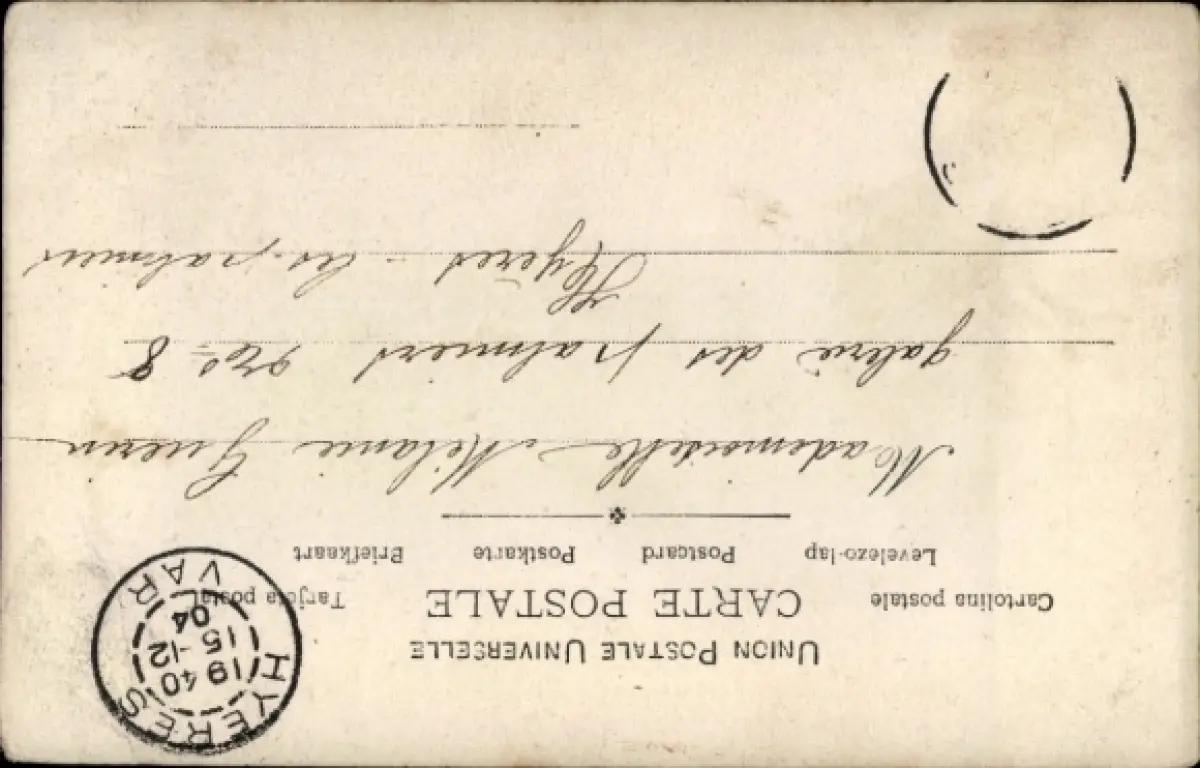 UNION POSTALE UNIVERSELLE
Cartolina postale CARTE POSTALE Tarjeta postal
Levelezo-lap Postcard Postkarte Briefkaart
Mademoiselle Mélanie Guerin
galerie des palmiers No 8
Hyères - les-palmiers
HYERES
19 40
15-12
04
VAR